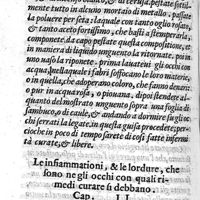 no bolandoui, & di cerusa pestate sotil
mente tutto in alcuno mortaio di metallo, passate
la poluere per seta: laquale con tanto oglio rosato,
& tanto aceto fortissimo, che basti a stemperarla,
componete. da capo pestate questa compositione, et
in maniera di liquido unguento la ritornate, per in
uno uaso la riponete. prima lauateui gli occhi con
acqua, nellaquale i fabri soffocano le loro materie,
o in quella, che adoperano coloro, che fanno denari,
o pur in acqua rosa, o piouana, dipoi stendere al-
quanto del mostrato unguento sopra una foglia di
sambuco, o di caule, & andando a dormire su gli oc
chi serrati la legate. in questa guisa procedete; per-
cioche in poco di tempo sarete di cosi fatte infermi
tà curate, & libere.
Le infiammationi, & le lordure, che
sono ne gli occhi con quali ri-
medi curare si debbano.
Cap. LI.